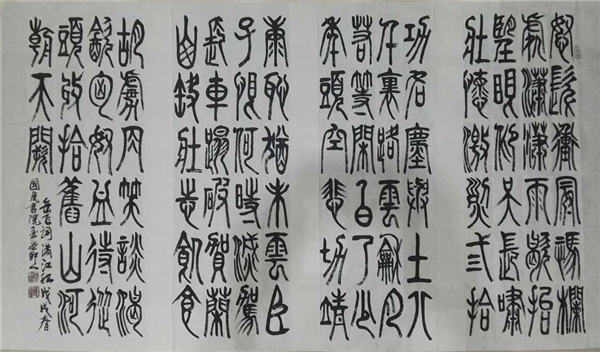 怒髮衝冠憑欄
處瀟瀟雨歇抬
望眼仰天長嘯
壯懷激烈弎拾
功名塵與土八
千裏路雲龢月
莫等閒白了少
年頭空悲切靖
康恥猶未雪臣
子恨何時滅駕
長車踏破賀蘭
山缺壯志飢食
胡虜肉笑談渴
飲匈奴血待從
頭收拾舊山河
朝天闕
岳飞词满江红戊戌春